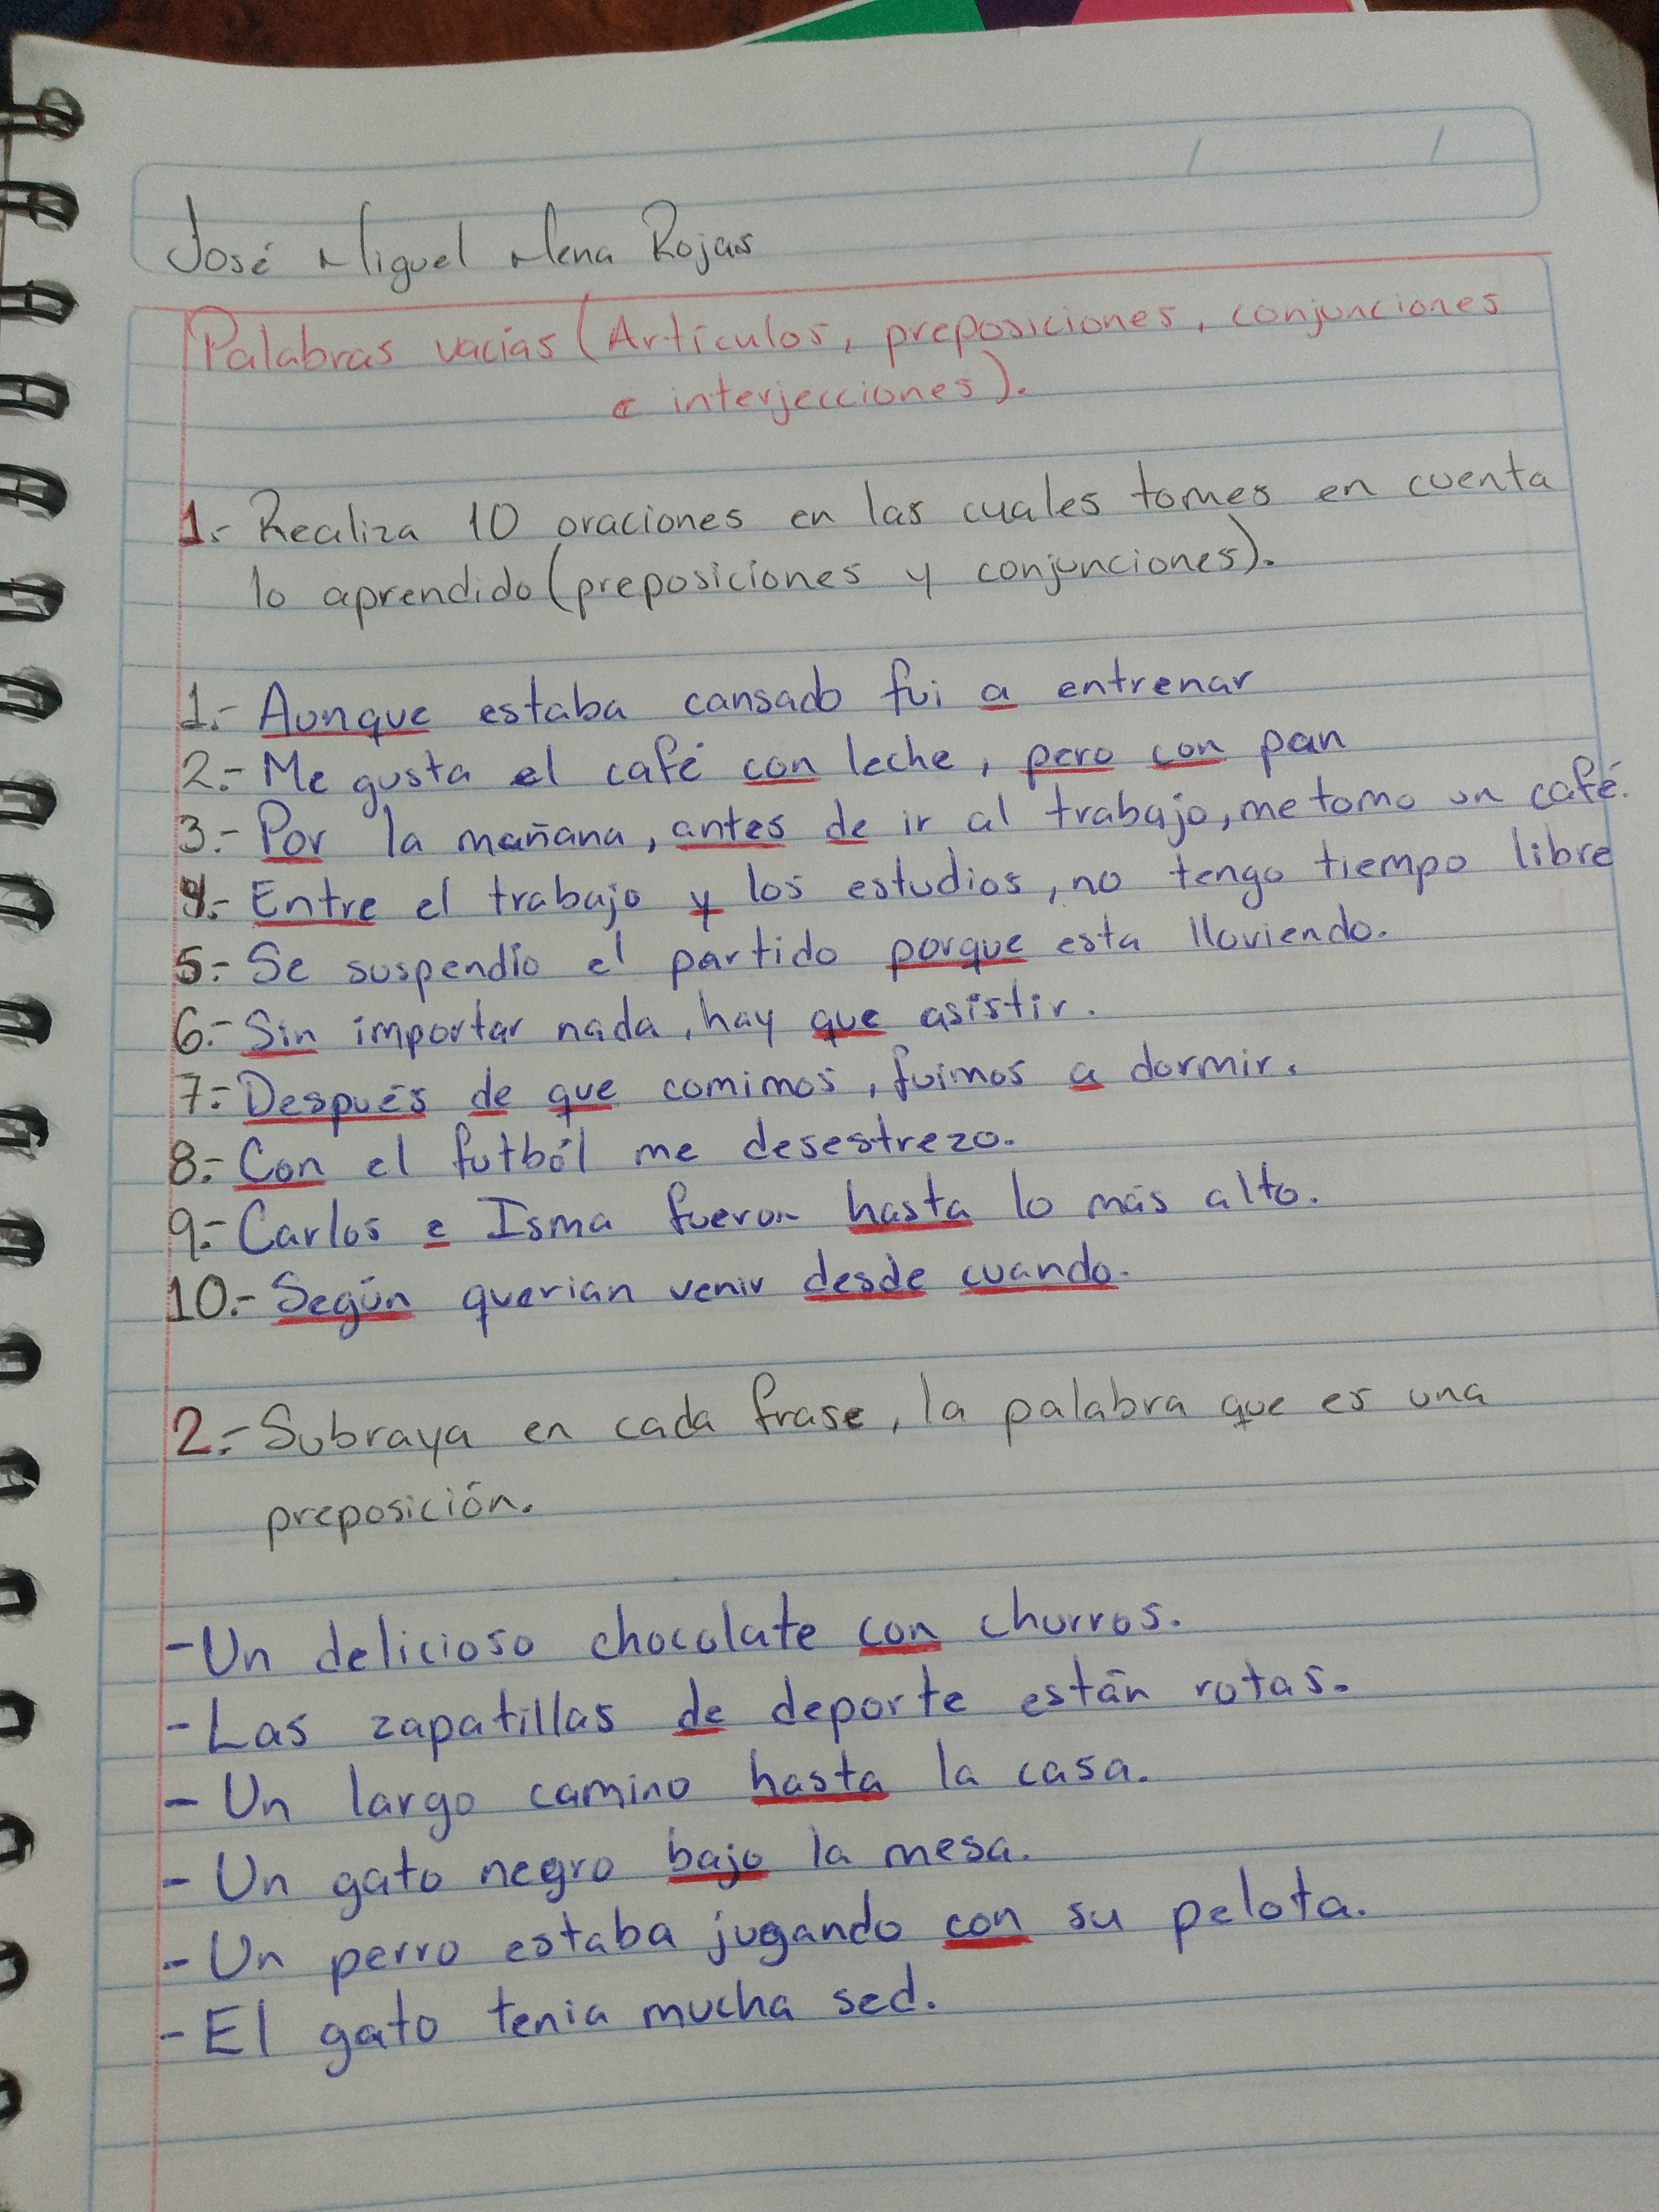 José Miguel Mena Rojas
Palabras vacías (Artículos, preposiciones, conjunciones
e interjecciones).
1.- Realiza 10 oraciones en las cuales tomes en cuenta
lo aprendido (preposiciones y conjunciones).
1.- Aunque estaba cansado fui a entrenar
2.- Me gusta el café con leche, pero con pan
3.- Por la mañana, antes de ir al trabajo, me tomo un café.
4.- Entre el trabajo y los estudios, no tengo tiempo libre
5.- Se suspendío el partido porque esta lloviendo.
6.- Sin importar nada, hay que asistir.
7.- Después de que comimos, fuimos a dormir.
8.- Con el futból me desestrezo.
9.- Carlos e Isma fueron hasta lo más alto.
10.- Según querian venir desde cuando.
2.- Subraya en cada frase, la palabra que es una
preposición.
- Un delicioso chocolate con churros.
- Las zapatillas de deporte están rotas.
- Un largo camino hasta la casa.
- Un gato negro bajo la mesa.
- Un perro estaba jugando con su pelota.
- El gato tenia mucha sed.